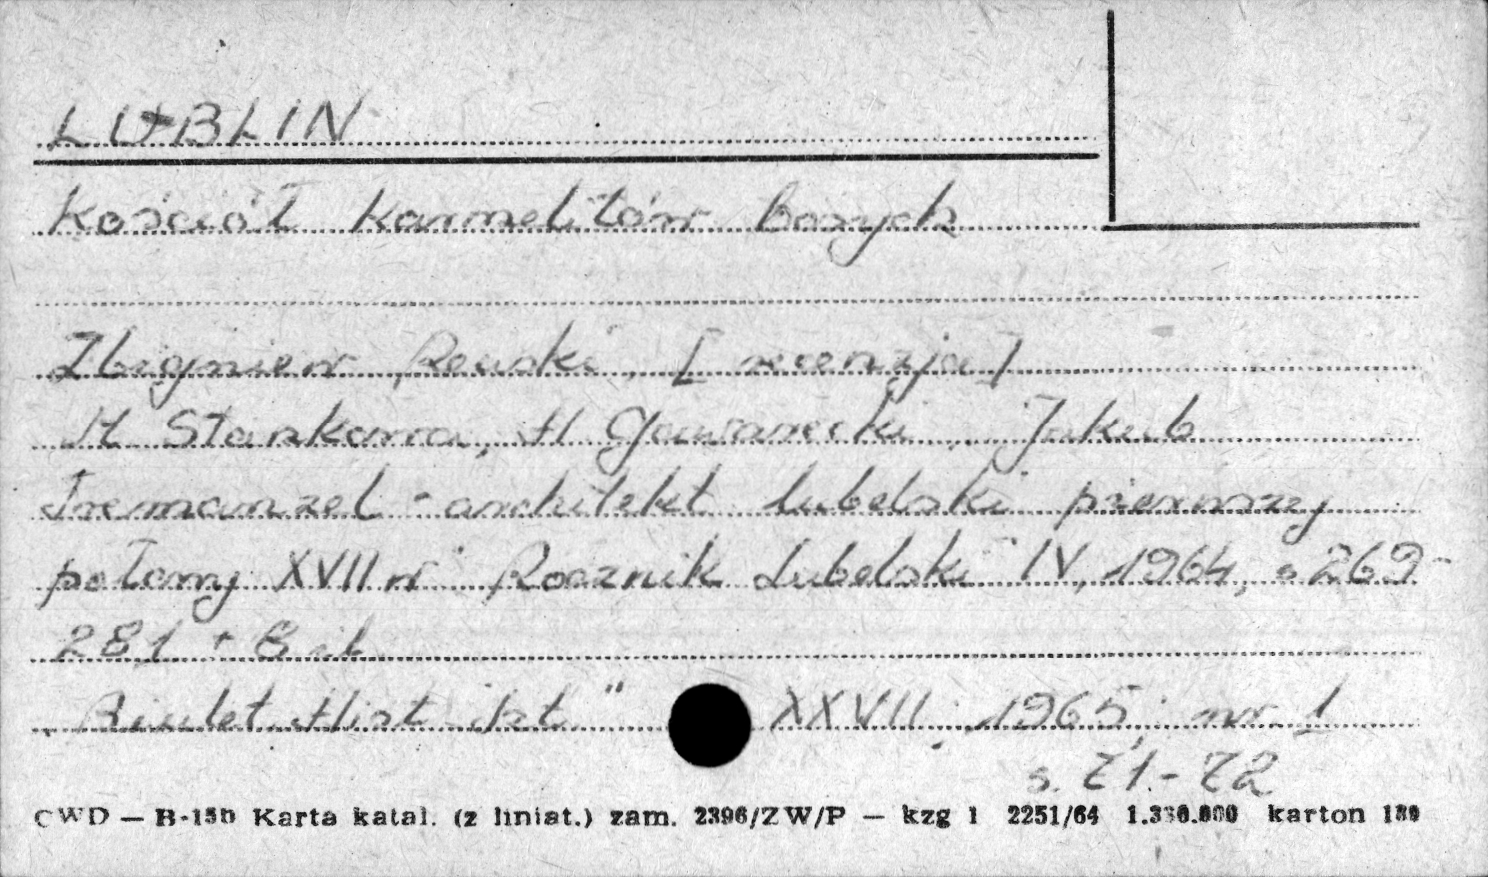 LUBLIN
Kościół Karmelitów bosych
Zbigniew Rewski, [recenzja]
H Stankowa, H Gawarecki, Jakub
Tremanzel - architekt lubelski pierwszej
połowy XVII w. Rocznik Lubelski IV, 1964, s 269-
281 + 8 il
„Biulet Hist szt" XXVII 1965, nr 1
s. 71.-72
CWD — B-15b Karta katal. (z liniat.) zam. 2396/ZW/P — kzg 1 2251/64 karton